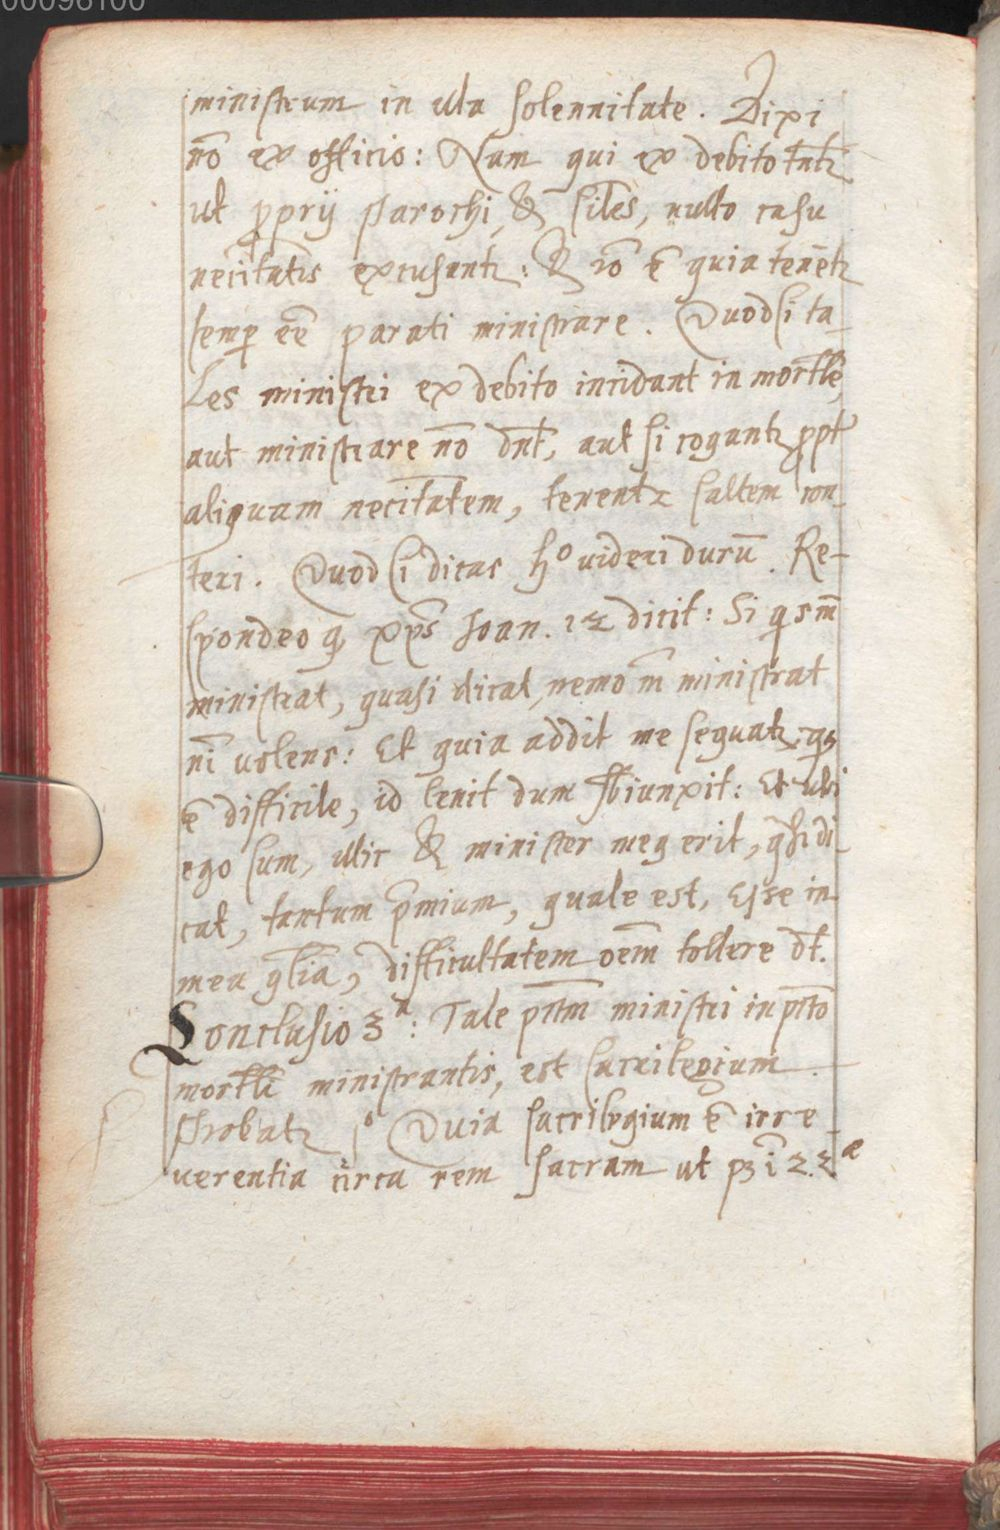 00096100
ministrum in illa solennitate. Dixi
nō ex officio: Nam qui ex debito tnt̄ꝛ
ut ꝓprij Parochi, & siles, nullo casu
necītatis excusantꝛ: & iō ē quia tenētꝛ
semꝑ eē parati ministrare. Quod si ta-
les ministri ex debito incidant in mortle,
aut ministrare nō dn̄t, aut si rogantꝛ ꝓpt̄
aliquam necitātem, terentꝛ saltem con-
teri. Quod si dicas hº uideri durū. Re-
spondeo ꝙ xp̄s Joan. 12 dicit: Si qs m̄
ministrat, quasi dicat, nemo m̄ ministrat
nī uolens: Et quia addit me sequatꝛ, qꝫ
ē difficile, id lenit dum sbiunxit: Et ubi
ego sum, illic & minister meꝯ erit, q̄si di-
cat, tantum p̄mium, quale est, esse in
mea gl̄ia, difficultatem oēm tollere dt̄.
Conclusio 3ª: Tale pct̄m ministri in pctō
mortli ministrantis, est sacrilegium.
Probatꝛ 1º Quia sacrilegium ē irre-
uerentia circa rem sacram ut pꝫ ī 2.2æ